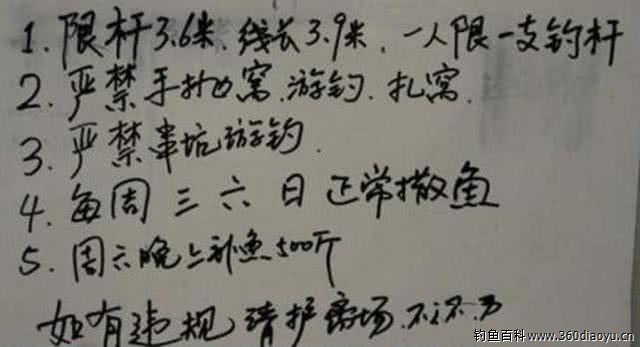 1. 限杆3.6米.线长3.9米.一人限一支钓杆
2. 严禁手抛窝.游钓.扎窝.
3. 严禁串坑游钓.
4. 每周三六日正常撒鱼
5. 周六晚上补鱼500斤
如有违规请护离场.不
钓鱼百科 www.360diaoyu.cn